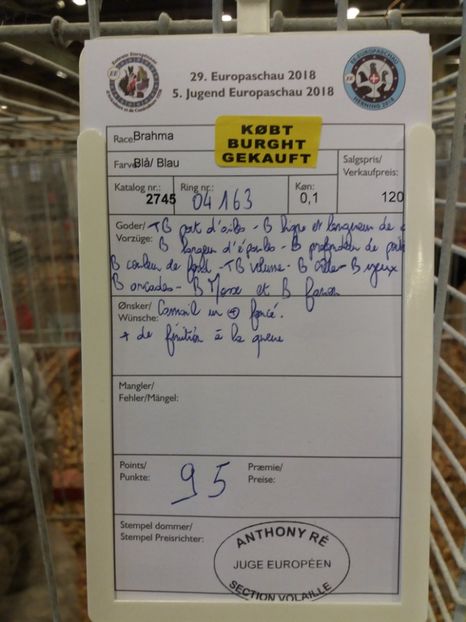 29. Europaschau 2018
5. Jugend Europaschau 2018
HERNING 2018
Race: Brahma
KØBT
BURGHT
GEKAUFT
Farve: Blå/ Blau
Salgspris/
Verkaufpreis:
120
Katalog nr.: 2745
Ring nr.: 04163
Køn: 0,1
Goder/
Vorzüge:
TB port d'ailes - B ligne et longueur de
B largeur d'épaules - B profondeur de
B couleur de fond - TB volume - B - B yeux
B arcades - B et B
Ønsker/
Wünsche:
Camail en + foncé.
+ de finition à la queue
Mangler/
Fehler/Mängel:
Points/
Punkte:
95
Præmie/
Preise:
Stempel dommer/
Stempel Preisrichter:
ANTHONY RÉ
JUGE EUROPÉEN
SECTION VOLAILLE